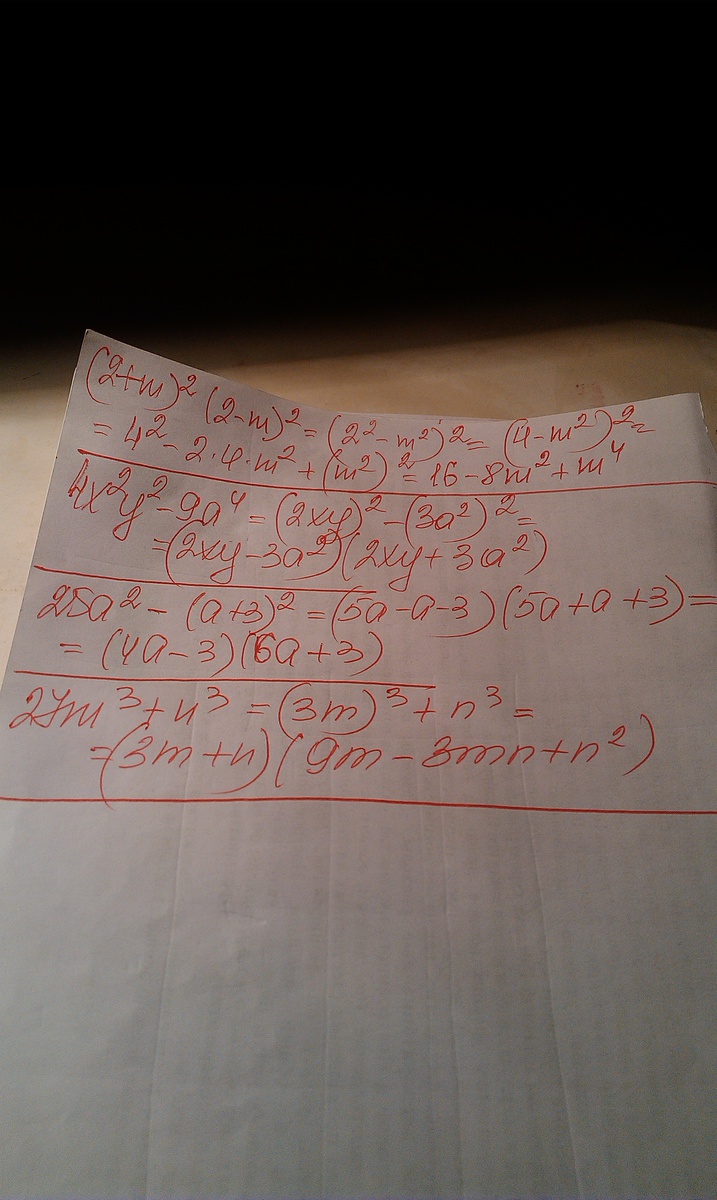 (2+m)² (2-m)² = (2² - m²)² = (4-m²)² =
= 4² - 2·4·m² + (m²)² = 16 - 8m² + m⁴
4x²y² - 9a⁴ = (2xy)² - (3a²)² =
= (2xy - 3a²)(2xy + 3a²)
25a² - (a+3)² = (5a - a - 3)(5a + a + 3) =
= (4a - 3)(6a + 3)
27m³ + n³ = (3m)³ + n³ =
= (3m + n)(9m - 3mn + n²)